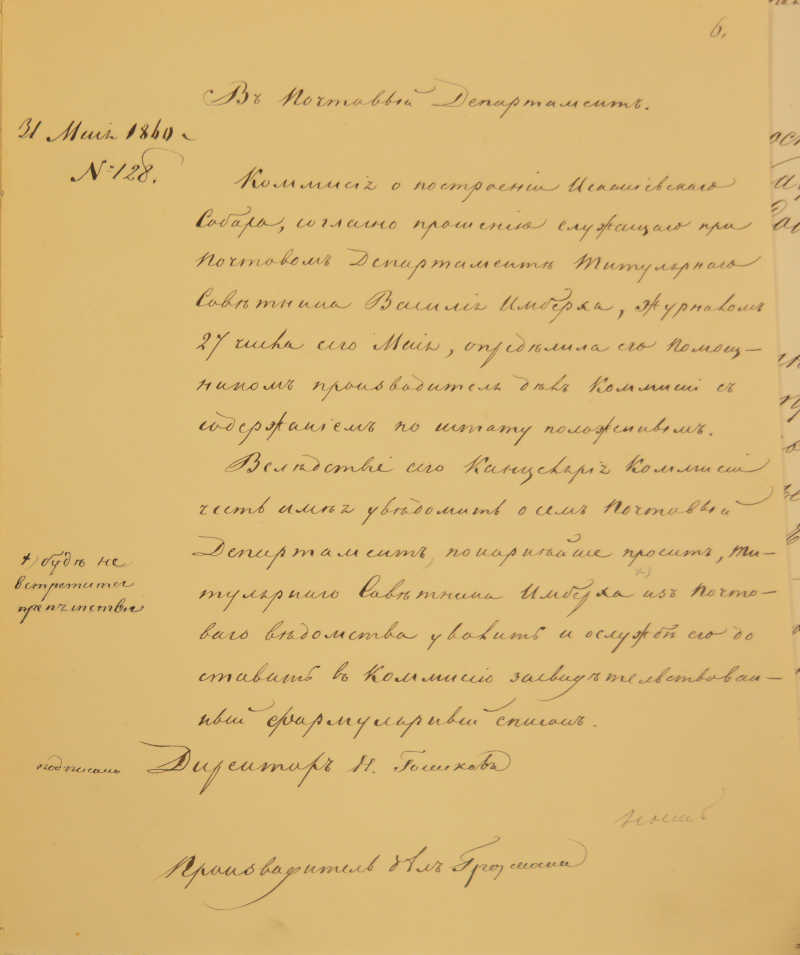 6.
Въ Почтовый Департаментъ.
31 Маія 1840 г
№ 128.
Коммисія о построеніи Исакіевскаго
Собора, согласно прошенію служащаго при
Почтовомъ Департаментѣ Титулярнаго
Совѣтника Василія Имберха, журналомъ
27 числа сего Маія, опредѣлила его Помощ—
никомъ производителя дѣлъ Коммисіи съ
содержаніемъ по штату положеннымъ.
Вслѣдствіе сего Канцелярія Коммисіи
честь имѣя увѣдомить о семъ Почтовый
Департаментъ, покорнѣйше проситъ, Ти—
тулярнаго Совѣтника Имберха +) изъ Почто—
ваго вѣдомства уволить и о службѣ его до
ставить въ Коммисію засвидѣтельствован—
ный формулярный списокъ.
+) будѣ не
встретится
препятствія
подписалъ Директоръ Н.
Производитель дѣлъ